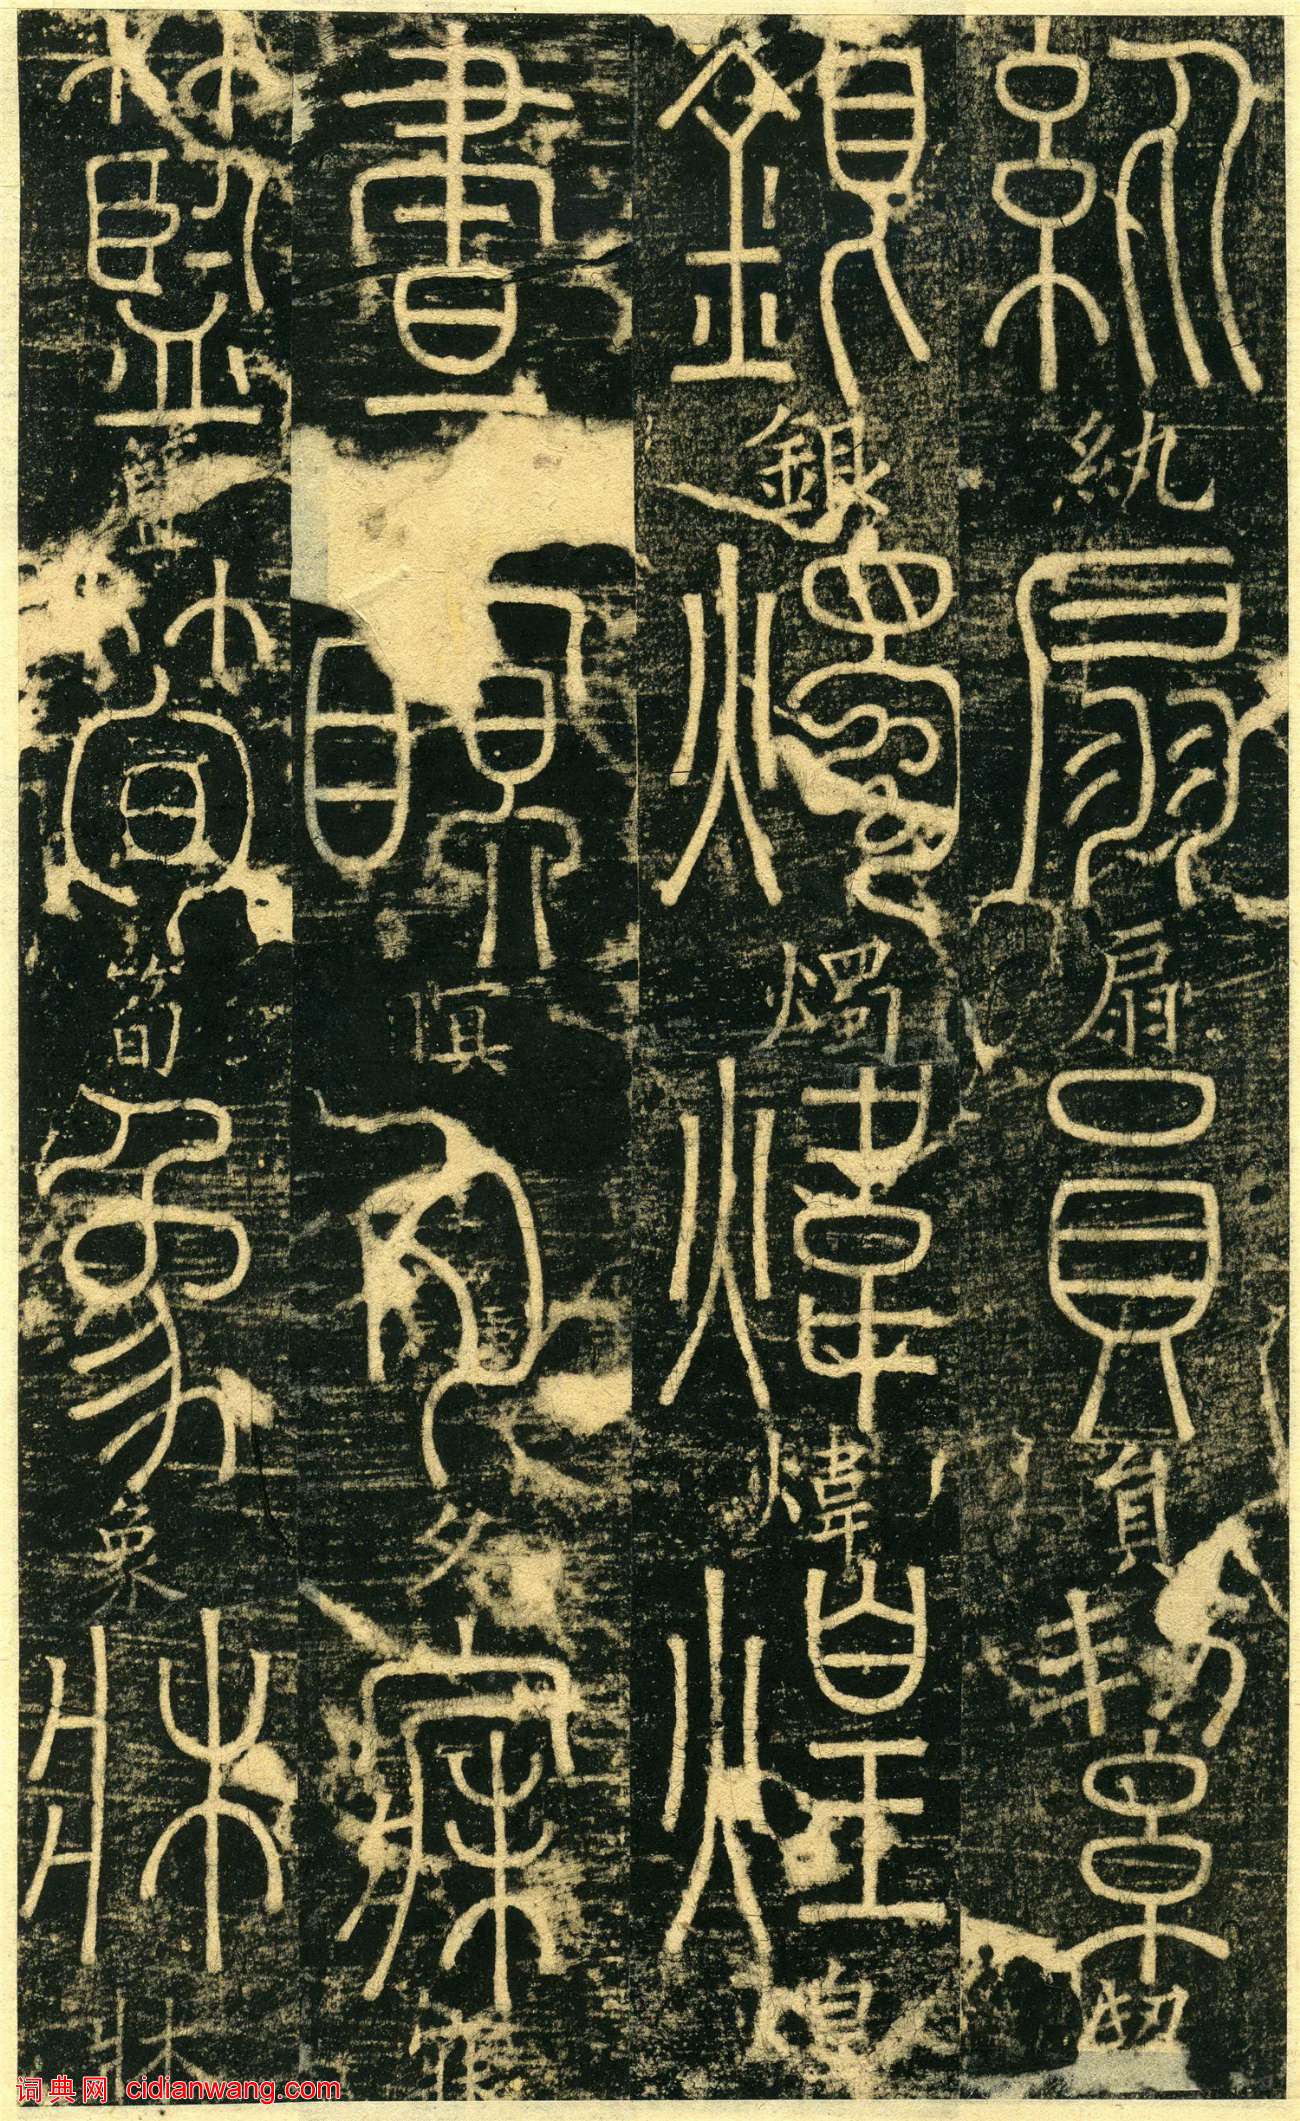 紈紈扇扇員員絜絜
銀銀燭燭煒煒煌煌
晝瞑瞑夕夕寐寐
藍藍筍筍象象牀牀
词典网 cidianwang.com